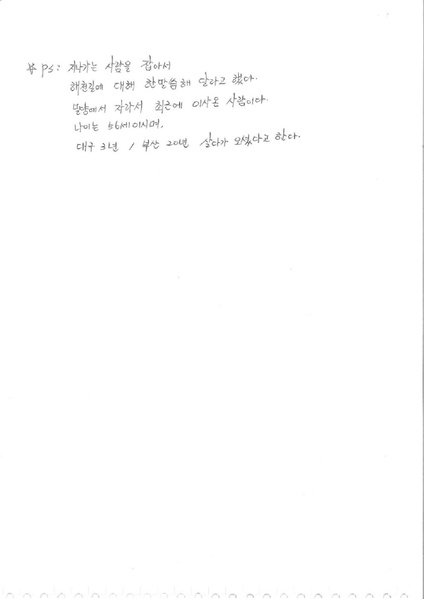 ※ PS : 지나가는 사람을 잡아서
해천길에 대해 한말씀해 달라고 했다.
밀양에서 자라서 최근에 이사온 사람이다.
나이는 56세이시며,
대구 3년 / 부산 20년 살다가 오셨다고 한다.